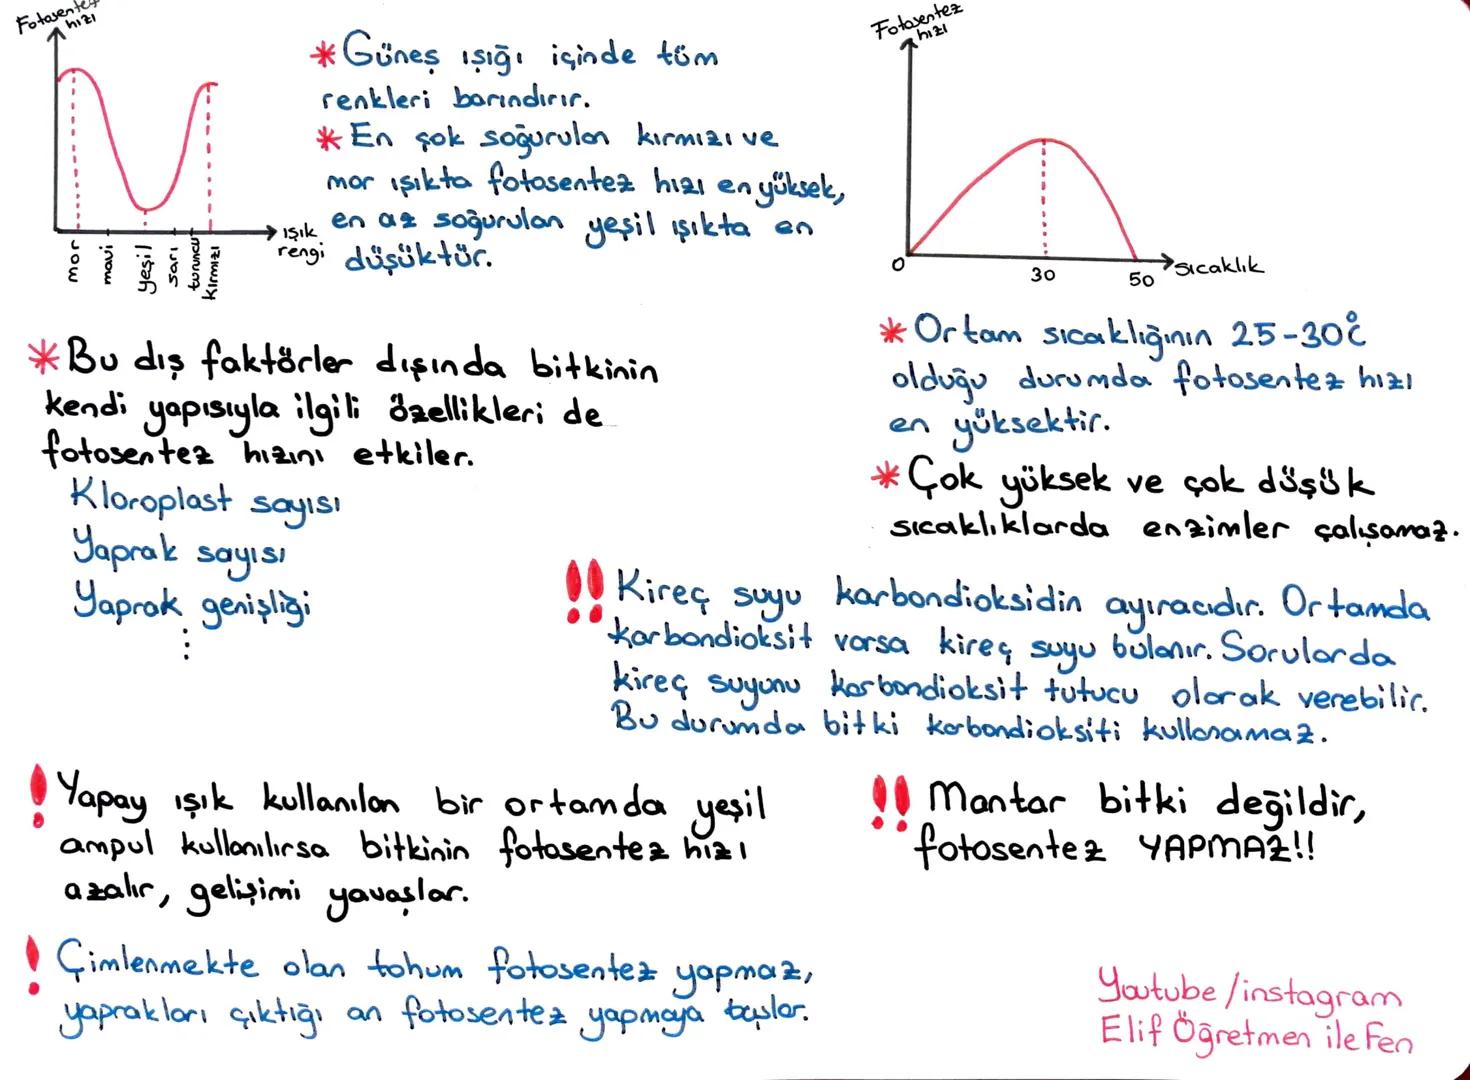 Fotosentez
hızı
* Güneş ışığı içinde tüm
renkleri barındırır.
* En çok soğurulan kırmızı ve
mor ışıkta fotosentez hızı en yüksek,
en az soğurulan yeşil ışıkta en
düşüktür.
ışık
rengi
mor
mavi
yeşil
sarı
turuncu
kırmızı
Fotosentez
hızı
0
30
50
sıcaklık
* Ortam sıcaklığının 25-30°C
olduğu durumda fotosentez hızı
en yüksektir.
* Çok yüksek ve çok düşük
sıcaklıklarda enzimler çalışamaz.
* Bu dış faktörler dışında bitkinin
kendi yapısıyla ilgili özellikleri de
fotosentez hızını etkiler.
Kloroplast sayısı
Yaprak sayısı
Yaprak genişliği
⋮
!! Kireç suyu karbondioksidin ayıracıdır. Ortamda
karbondioksit varsa kireç suyu bulanır. Sorularda
kireç suyunu karbondioksit tutucu olarak verebilir.
Bu durumda bitki karbondioksiti kullanamaz.
! Yapay ışık kullanılan bir ortamda yeşil
ampul kullanılırsa bitkinin fotosentez hızı
azalır, gelişimi yavaşlar.
!! Mantar bitki değildir,
fotosentez YAPMAZ!!
! Çimlenmekte olan tohum fotosentez yapmaz,
yaprakları çıktığı an fotosentez yapmaya başlar.
Youtube/instagram
Elif Öğretmen ile Fen